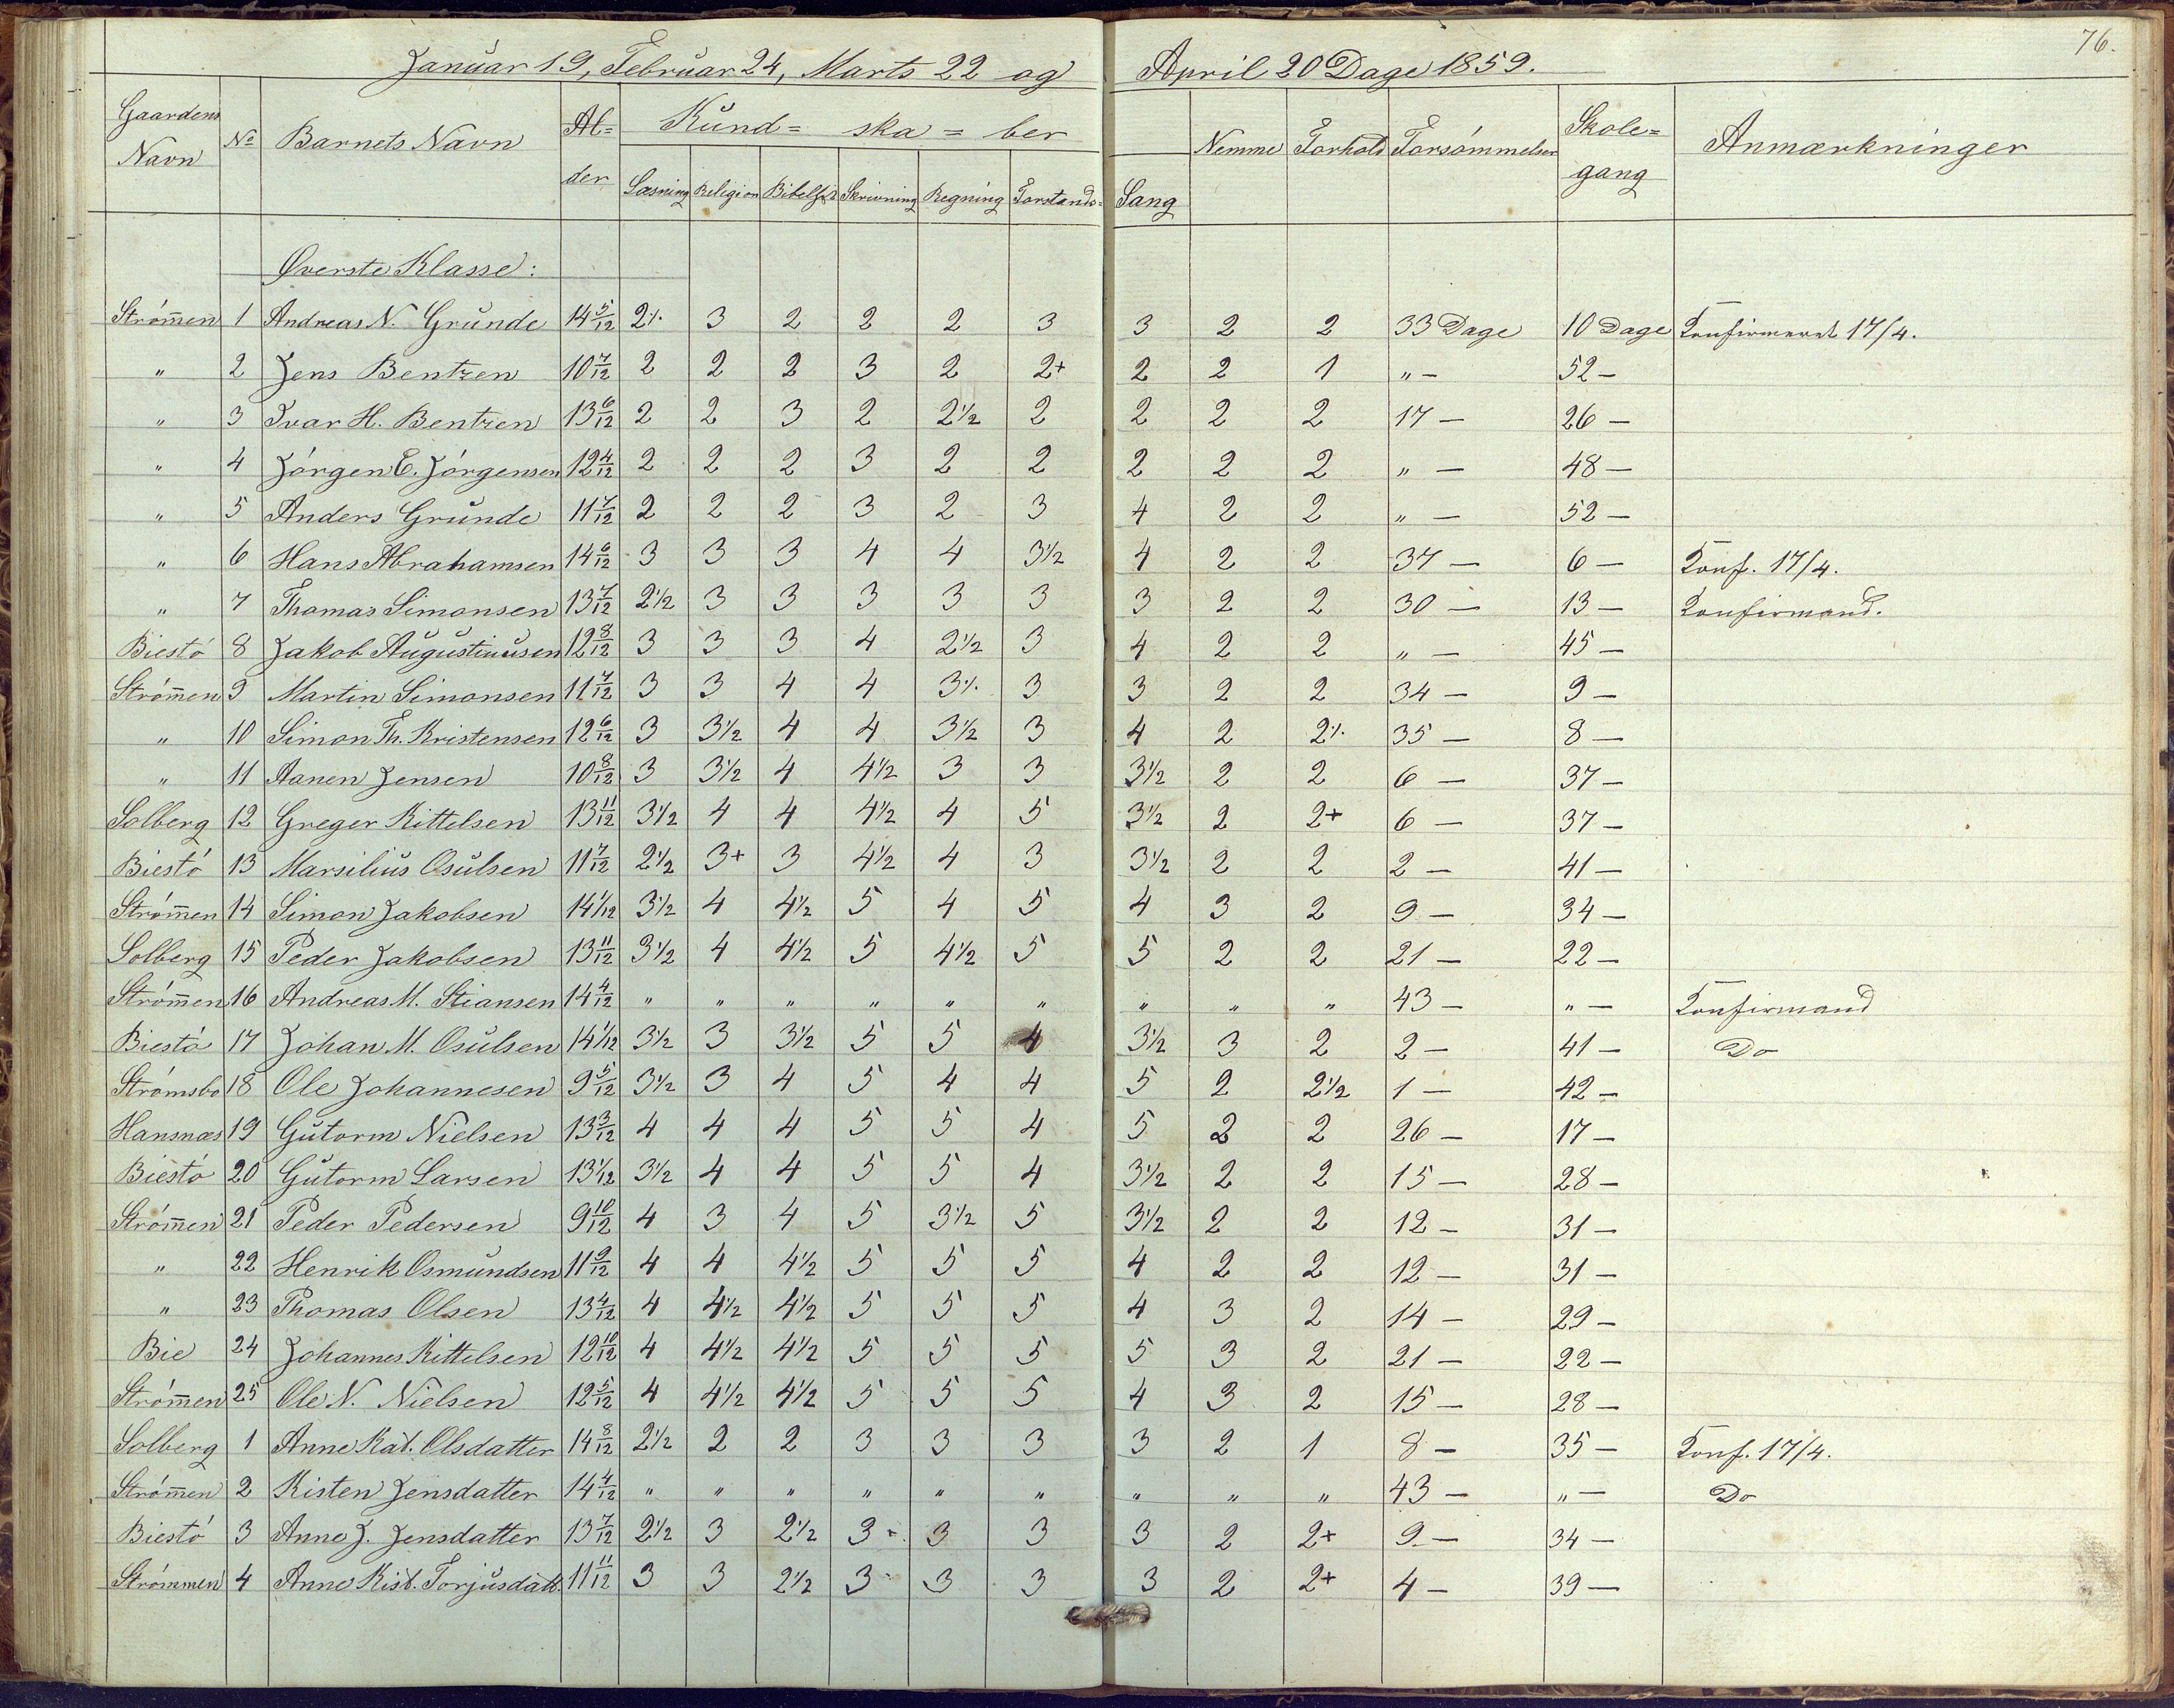 76.
Januar 19, Februar 24, Marts 22 og April 20 Dage 1859.
Gaardens Navn | No | Barnets Navn | Al=der | Kund=ska=ber | Nemme | Forhold | Forsømmelser | Skole=gang | Anmærkninger
Læsning | Religion | Skrivning | Regning | Forstands= | Sang
Øverste Klasse:
Strømen 1 Andreas N. Grunde 14 5/12 2% 3 2 2 2 3 3 2 2 33 Dage 10 Dage Konfirmeret 17/4.
" 2 Jens Bentzen 10 7/12 2 2 2 3 2 2+ 2 2 1 " — 52 —
" 3 Ivar H. Bentzen 13 6/12 2 2 3 2 2½ 2 2 2 2 17 — 26 —
" 4 Jørgen E. Jørgensen 12 4/12 2 2 2 3 2 2 2 2 2 " — 48 —
" 5 Anders Grunde 11 7/12 2 2 2 3 2 3 4 2 2 " — 52 —
" 6 Hans Abrahamsen 14 6/12 3 3 3 4 4 3½ 4 2 2 37 — 6 — Konf. 17/4.
" 7 Thomas Simonsen 13 7/12 2½ 3 3 3 3 3 3 2 2 30 — 13 — Konfirmand.
Biestø 8 Jakob Augustinusen 12 8/12 3 3 3 4 2½ 3 4 2 2 " — 45 —
Strømen 9 Martin Simonsen 11 7/12 3 3 4 4 3% 3 3 2 2 34 — 9 —
" 10 Simon Th. Kristensen 12 6/12 3 3½ 4 4 3½ 3 4 2 2% 35 — 8 —
" 11 Aanen Jensen 10 8/12 3 3½ 4 4½ 3 3 3½ 2 2 6 — 37 —
Solberg 12 Greger Kittelsen 13 11/12 3½ 4 4 4½ 4 5 3½ 2 2+ 6 — 37 —
Biestø 13 Marsilius Osulsen 11 7/12 2½ 3+ 3 4½ 4 3 3½ 2 2 2 — 41 —
Strømen 14 Simon Jakobsen 14 1/12 3½ 4 4½ 5 4 5 4 3 2 9 — 34 —
Solberg 15 Peder Jakobsen 13 11/12 3½ 4 4½ 5 4½ 5 5 2 2 21 — 22 —
Strømen 16 Andreas M. Stiansen 14 4/12 " " " " " " " " " 43 — " — Konfirmand
Biestø 17 Johan M. Osulsen 14 1/12 3½ 3 3½ 5 5 4 3½ 3 2 2 — 41 — Do
Strømsbo 18 Ole Johannesen 9 5/12 3½ 3 4 5 4 4 5 2 2½ 1 — 42 —
Hansnæs 19 Gutorm Nielsen 13 3/12 4 4 4 5 5 4 5 2 2 26 — 17 —
Biestø 20 Gutorm Larsen 13 1/12 3½ 4 4 5 5 4 3½ 2 2 15 — 28 —
Strømen 21 Peder Pedersen 9 10/12 4 3 4 5 3½ 5 3½ 2 2 12 — 31 —
" 22 Henrik Osmundsen 11 9/12 4 4 4½ 5 5 5 4 2 2 12 — 31 —
" 23 Thomas Olsen 13 4/12 4 4½ 4½ 5 5 5 4 3 2 14 — 29 —
Bie 24 Johannes Kittelsen 12 10/12 4 4½ 4½ 5 5 5 5 3 2 21 — 22 —
Strømen 25 Ole N. Nielsen 12 5/12 4 4½ 4½ 5 5 5 4 3 2 15 — 28 —
Solberg 1 Anne Kat. Olsdatter 14 8/12 2½ 2 2 3 3 3 3 2 1 8 — 35 — Konf. 17/4.
Strømen 2 Kisten Jensdatter 14 4/12 " " " " " " " " " 43 — " — Do
Biestø 3 Anne J. Jensdatter 13 7/12 2½ 3 2½ 3 3 3 3 2 2+ 9 — 34 —
Strømmen 4 Anne Kist. Torjusdatt. 11 11/12 3 3 2½ 3 3 3 3 2 2+ 4 — 39 —